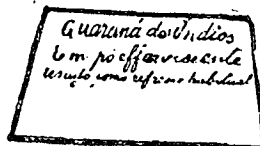 Guaraná dos Indios
Em pó effervescente
como refresco habitual